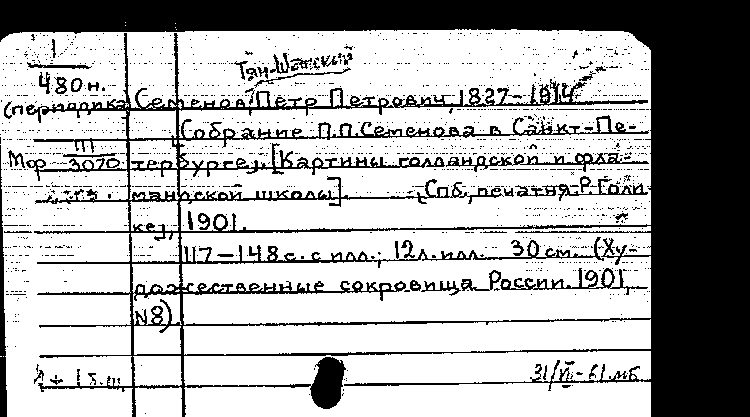 1
Тян-Шанский
480 н.
(периодика) Семенов, Петр Петрович, 1827-1914
Собрание П.П.Семенова в Санкт-Пе-
III
Мор 3070 тербурге. [Картины голландской и фла-
мандской школы]. Спб, печатня Р. Голи
ке], 1901.
117-148 с. с илл.; 12 л. илл. 30 см. (Ху-
дожественные сокровища России. 1901,
N8).
31/VII-61 мб